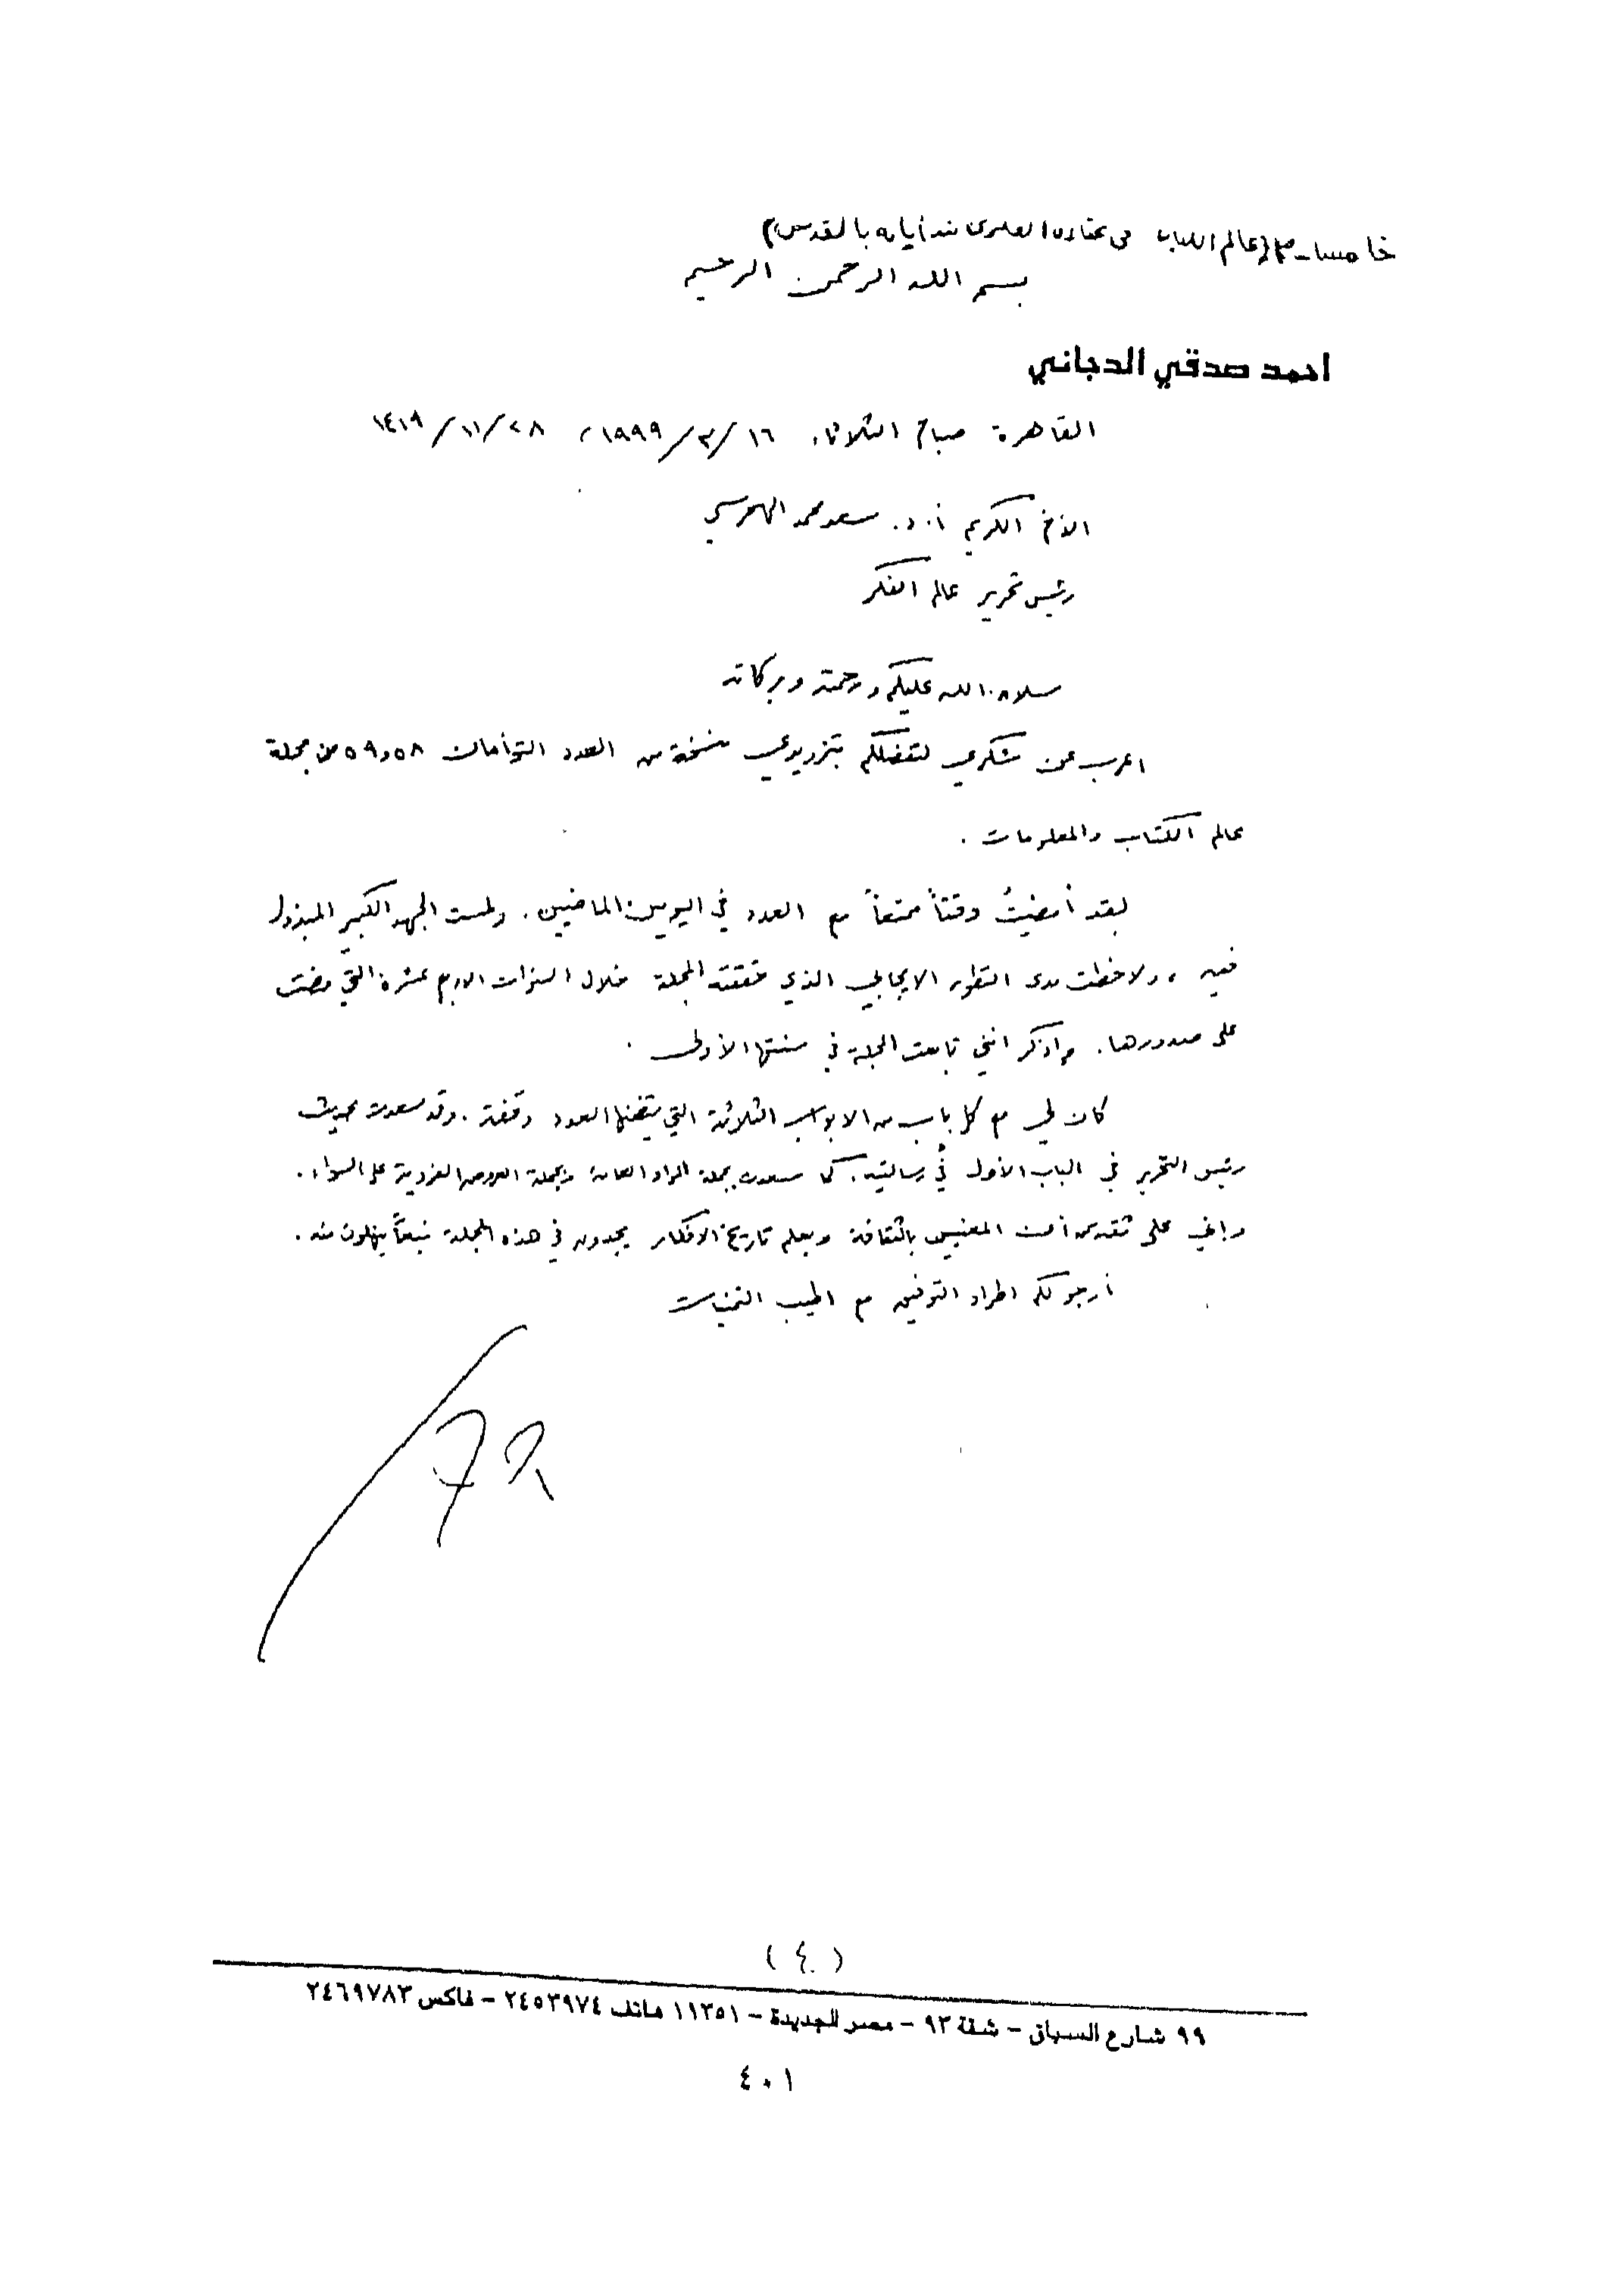 خامسا ـ ٣ (عالم الكتاب في بالقدس)
بسم الله الرحمن الرحيم
احمد صدقي الدجاني
القاهرة صباح الثلاثاء ١٦/٣/١٩٩٩، ٢٨/١١/١٤١٩
الأخ الكريم أ. د. سعد محمد الهجرسي
رئيس تحرير عالم الفكر
سلام الله عليكم ورحمته وبركاته
اعرب عن شكري لتفضلكم بتزويدي بنسخة من العدد التوأمان ٥٨ و ٥٩ من مجلة
عالم الكتاب والمعلومات .
لقد أمضيتُ وقتاً ممتعاً مع العدد في اليومين الماضيين . ولمست الجهد الكبير المبذول
فيه ، ولاحظت مدى التطور الايجابي الذي حققته المجلة خلال السنوات الاربع عشرة التي مضت
على صدورها. واذكر انني تابعت المجلة في سنتها الأولى .
كان لي مع كل باب من الابواب الثلاثة التي يتضمنها العدد وقفة . وقد سعدت بحديث
رئيس التحرير في الباب الأول في رسالتيه . كما سعدت بجملة المواد العامة وبجملة العروض الفردية على السواء .
واني على ثقة من أن المعنيين بالثقافة وبعلم تاريخ الافكار يجدون في هذه المجلة نبعاً ينهلون منه .
أرجو لكم اطراد التوفيق مع اطيب التمنيات
(٤٠)
٩٩ شارع السباق - شقة ٩٣ - مصر الجديدة - ١١٣٥١ هاتف ٢٤٥٣٩٧٤ - فاكس ٢٤٦٩٧٨٣
٤٠١